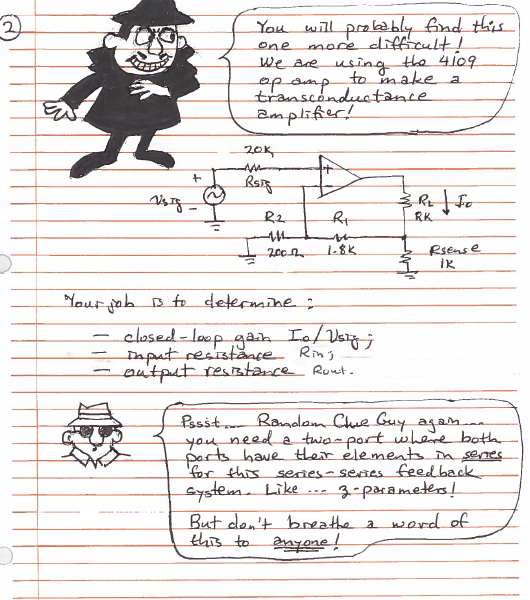 2
You will probably find this
one more difficult!
We are using the 4109
op amp to make a
transconductance
amplifier!
20K
Rsig
+
Vsig
-
+
-
RL
RK
Io
R2
200Ω
R1
1.8K
Rsense
1K
Your job is to determine:
- closed-loop gain Io/Vsig;
- input resistance Rin;
- output resistance Rout.
Pssst... Random Clue Guy again...
you need a two-port where both
ports have their elements in series
for this series-series feedback
system. Like ... z-parameters!
But don't breathe a word of
this to anyone!